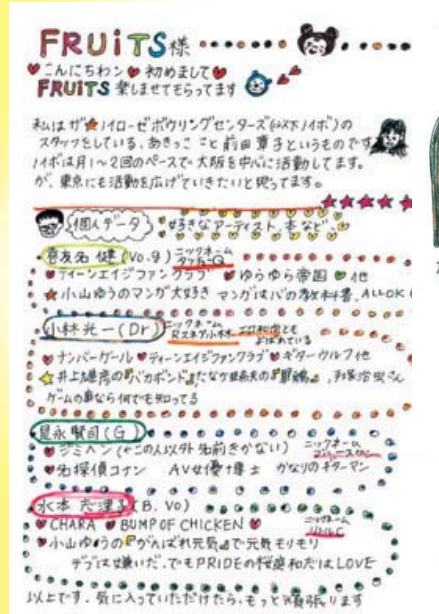 FRUiTS様
こんにちわン♥初めまして♥
FRUiTS 楽しませてもらってます
私はザ★ノイローゼボウリングセンターズ(以下ノイボ)の
スタッフをしている、あきっこ こと 前田 章子というものです
ノイボは月1〜2回のペースで大阪を中心に活動してます。
が、東京にも活動を広げていきたいと思ってます。
個人データ 好きなアーティスト、本など、
健(Vo.g) ニックネーム
♥ティーンエイジファンクラブ ♥ゆらゆら帝国 ♥他
★小山ゆうのマンガ大好き マンガはバカの教科書、ALL OK
小林光一(Dr) ニックネーム
よばれている
♥ナンバーガール♥ティーンエイジファンクラブ♥ギターウルフ他
☆井上雄彦の『バカボンド』たなか亜希夫の『軍鶏』、手塚治虫さん
ゲームの事なら何でも知ってる
是永賢司(G)
♥ジミヘン(この人以外名前きかない) ニックネーム
♥名探偵コナン AV女優博士 かなりのギターマン
水本 (B. Vo)
♥CHARA ♥BUMP OF CHICKEN♥ ニックネーム
♥小山ゆうの『がんばれ元気』で元気モリモリ
デブは嫌いだ、でもPRIDEの桜庭和志はLOVE
以上です。気に入っていただけたら、もっと頑張ります